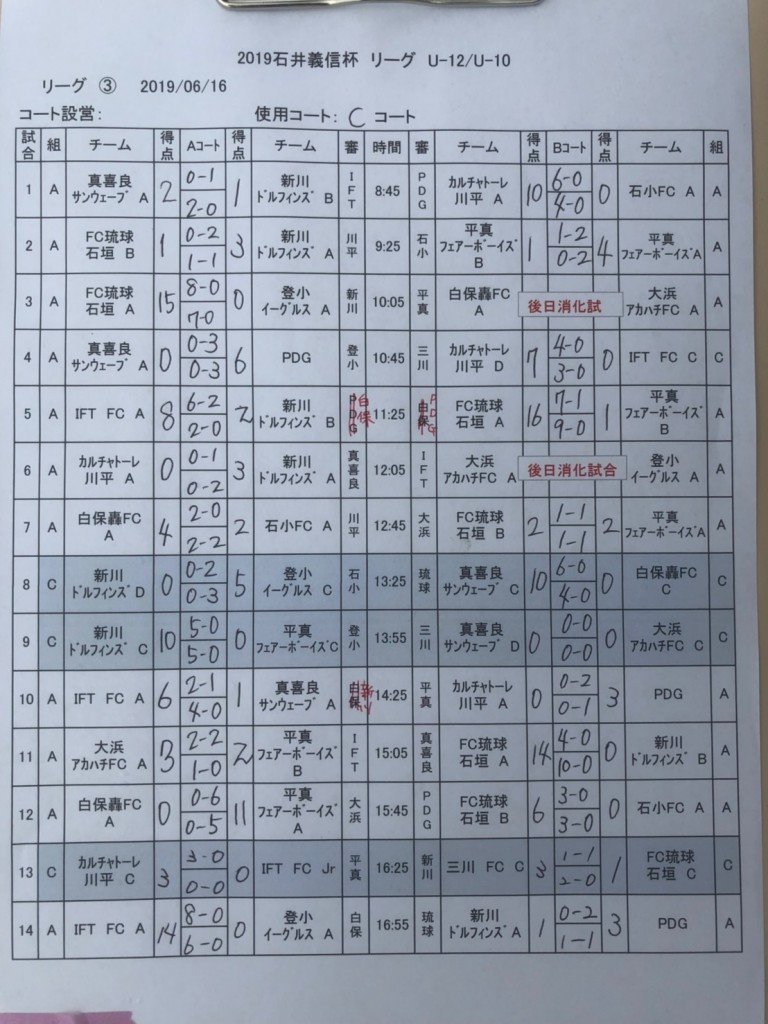 2019石井義信杯 リーグ U-12/U-10
リーグ ③ 2019/06/16
コート設営: 使用コート: C コート
試合 組 チーム 得点 Aコート 得点 チーム 審 時間 審 チーム 得点 Bコート 得点 チーム 組
1 A 真喜良 サンウェーブ A 2 0-1 2-0 1 新川 ドルフィンズ B IFT 8:45 PDG カルチャトーレ 川平 A 10 6-0 4-0 0 石小FC A A
2 A FC琉球 石垣 B 1 0-2 1-1 3 新川 ドルフィンズ A 川平 9:25 石小 平真 フェアーボーイズ B 1 1-2 0-2 4 平真 フェアーボーイズA A
3 A FC琉球 石垣 A 15 8-0 7-0 0 登小 イーグルス A 新川 10:05 平真 白保轟FC A 後日消化試 大浜 アカハチFC A A
4 A 真喜良 サンウェーブ A 0 0-3 0-3 6 PDG 登小 10:45 三川 カルチャトーレ 川平 D 7 4-0 3-0 0 IFT FC C C
5 A IFT FC A 8 6-2 2-0 2 新川 ドルフィンズ B PDG 白保 11:25 白保 PDG FC琉球 石垣 A 16 7-1 9-0 1 平真 フェアーボーイズ B A
6 A カルチャトーレ 川平 A 0 0-1 0-2 3 新川 ドルフィンズ A 真喜良 12:05 IFT 大浜 アカハチFC A 後日消化試合 登小 イーグルス A A
7 A 白保轟FC A 4 2-0 2-2 2 石小FC A 川平 12:45 大浜 FC琉球 石垣 B 2 1-1 1-1 2 平真 フェアーボーイズA A
8 C 新川 ドルフィンズD 0 0-2 0-3 5 登小 イーグルス C 石小 13:25 琉球 真喜良 サンウェーブ C 10 6-0 4-0 0 白保轟FC C C
9 C 新川 ドルフィンズ C 10 5-0 5-0 0 平真 フェアーボーイズC 登小 13:55 三川 真喜良 サンウェーブ D 0 0-0 0-0 0 大浜 アカハチFC C C
10 A IFT FC A 6 2-1 4-0 1 真喜良 サンウェーブ A 白保 新川 14:25 平真 カルチャトーレ 川平 A 0 0-2 0-1 3 PDG A
11 A 大浜 アカハチFC A 3 2-2 1-0 2 平真 フェアーボーイズ B IFT 15:05 真喜良 FC琉球 石垣 A 14 4-0 10-0 0 新川 ドルフィンズ B A
12 A 白保轟FC A 0 0-6 0-5 11 平真 フェアーボーイズ A 大浜 15:45 PDG FC琉球 石垣 B 6 3-0 3-0 0 石小FC A A
13 C カルチャトーレ 川平 C 3 3-0 0-0 0 IFT FC Jr 平真 16:25 新川 三川 FC C 3 1-1 2-0 1 FC琉球 石垣 C C
14 A IFT FC A 14 8-0 6-0 0 登小 イーグルス A 白保 16:55 琉球 新川 ドルフィンズ A 1 0-2 1-1 3 PDG A